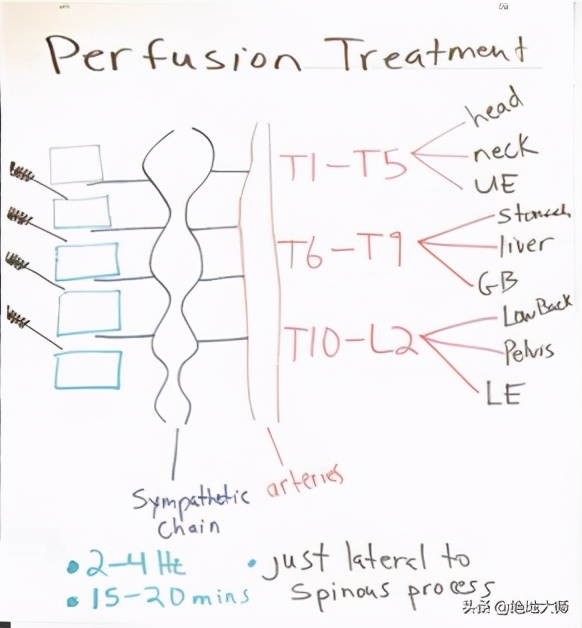 Perfusion Treatment
T1-T5
head
neck
UE
T6-T9
stomach
liver
GB
T10-L2
Low Back
Pelvis
LE
Sympathetic
Chain
arteries
• 2-4 Hz
• 15-20 mins
• just lateral to
Spinous process
头条 @绝地大师